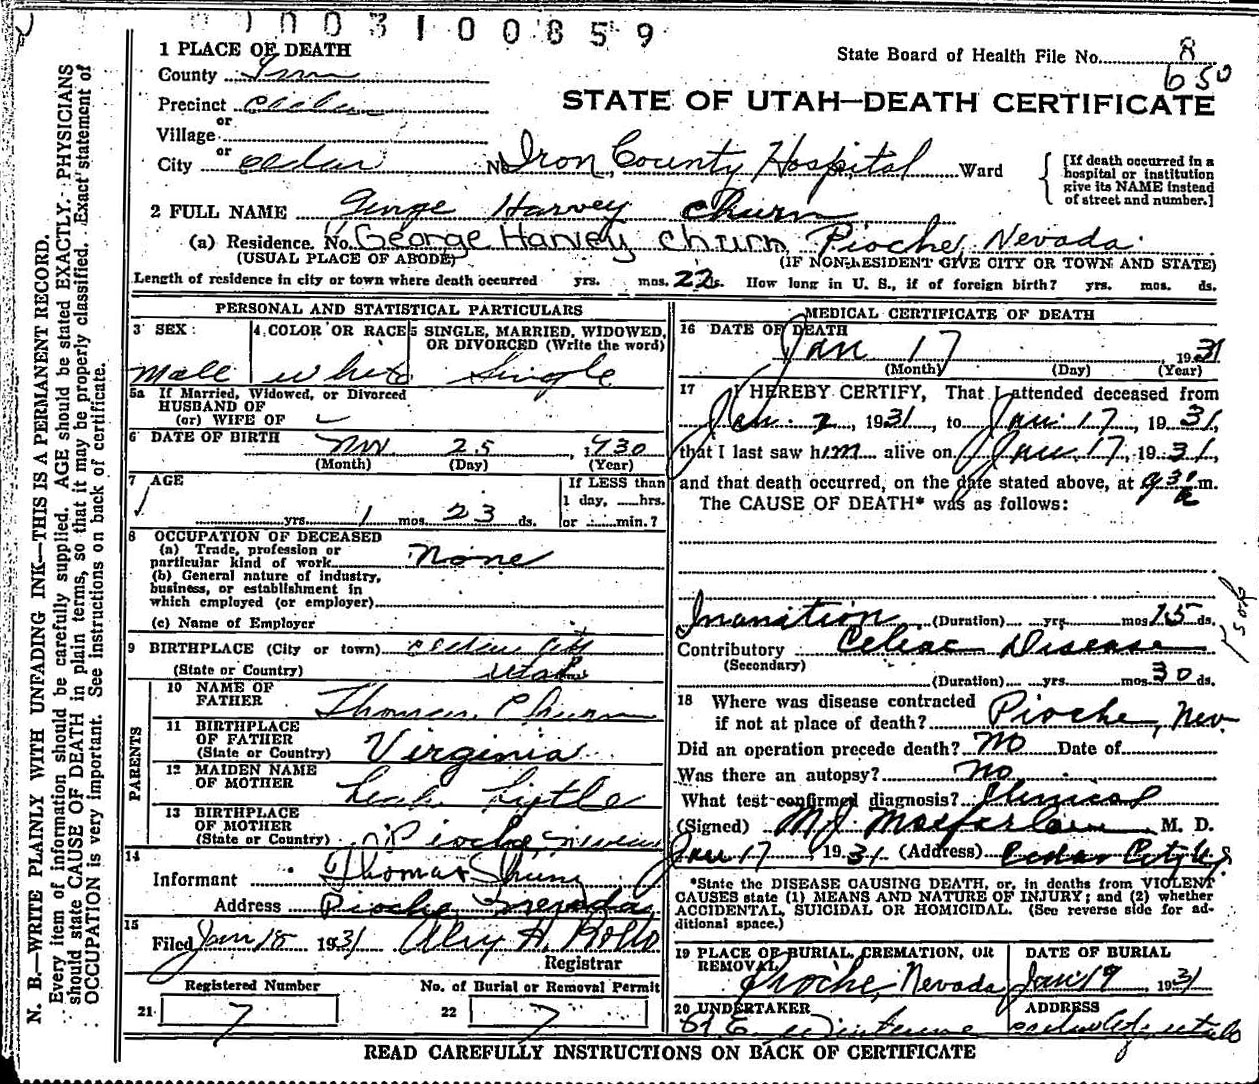 00310 0859
1 PLACE OF DEATH
County Iron
State Board of Health File No. 8
650
Precinct Cedar
or
STATE OF UTAH—DEATH CERTIFICATE
Village
or
City Cedar No. Iron County Hospital Ward
[If death occurred in a hospital or institution give its NAME instead of street and number.]
2 FULL NAME George Harvey Churn
(a) Residence. No. George Harvey Churn Pioche, Nevada.
(USUAL PLACE OF ABODE) (IF NON-RESIDENT GIVE CITY OR TOWN AND STATE)
Length of residence in city or town where death occurred yrs. mos. 22 ds. How long in U. S., if of foreign birth? yrs. mos. ds.
PERSONAL AND STATISTICAL PARTICULARS
3 SEX: 4 COLOR OR RACE 5 SINGLE, MARRIED, WIDOWED,
OR DIVORCED (Write the word)
Male White Single
5a If Married, Widowed, or Divorced
HUSBAND OF
(or) WIFE OF
6 DATE OF BIRTH Nov 25, 1930
(Month) (Day) (Year)
7 AGE
If LESS than
1 day, hrs.
yrs. 1 mos. 23 ds. or min.?
8 OCCUPATION OF DECEASED
(a) Trade, profession or
particular kind of work None
(b) General nature of industry,
business, or establishment in
which employed (or employer)
(c) Name of Employer
9 BIRTHPLACE (City or town) Cedar City
(State or Country) Utah
PARENTS
10 NAME OF
FATHER Thomas Churn
11 BIRTHPLACE
OF FATHER
(State or Country) Virginia
12 MAIDEN NAME
OF MOTHER Leah Lytle
13 BIRTHPLACE
OF MOTHER
(State or Country) Pioche Nevada
14
Informant Thomas Churn
Address Pioche Nevada
15
Filed Jan 18 1931
Registrar
Registered Number No. of Burial or Removal Permit
21 7 22 7
MEDICAL CERTIFICATE OF DEATH
16 DATE OF DEATH
Jan 17, 1931
(Month) (Day) (Year)
17 I HEREBY CERTIFY, That I attended deceased from
Jan. 2, 1931, to Jan. 17, 1931,
that I last saw him alive on Jan. 17, 1931,
and that death occurred, on the date stated above, at 930 m.
The CAUSE OF DEATH* was as follows:
Inanition (Duration) yrs. mos. 15 ds.
Contributory Celiac Disease
(Secondary)
(Duration) yrs. mos. 30 ds.
18 Where was disease contracted
if not at place of death? Pioche, Nev.
Did an operation precede death? No Date of
Was there an autopsy? No
What test confirmed diagnosis? Clinical
(Signed) M J Macfarlane M. D.
Jan 17 1931 (Address) Cedar City U.
*State the DISEASE CAUSING DEATH, or, in deaths from VIOLENT
CAUSES state (1) MEANS AND NATURE OF INJURY; and (2) whether
ACCIDENTAL, SUICIDAL OR HOMICIDAL. (See reverse side for ad-
ditional space.)
19 PLACE OF BURIAL, CREMATION, OR
REMOVAL
DATE OF BURIAL
Pioche, Nevada Jan 19 1931
20 UNDERTAKER ADDRESS
Cedar City, Utah
READ CAREFULLY INSTRUCTIONS ON BACK OF CERTIFICATE
N. B.—WRITE PLAINLY WITH UNFADING INK—THIS IS A PERMANENT RECORD.
Every item of information should be carefully supplied. AGE should be stated EXACTLY. PHYSICIANS
should state CAUSE OF DEATH in plain terms, so that it may be properly classified. Exact statement of
OCCUPATION is very important. See instructions on back of certificate.